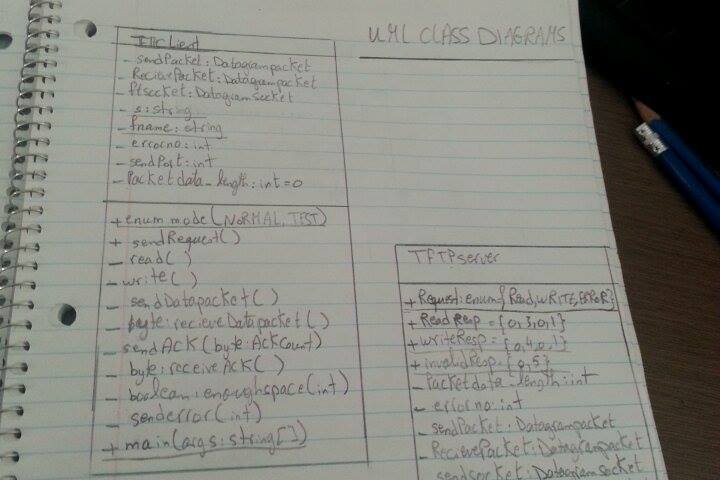 UML CLASS DIAGRAMS
- sendPacket : Datagrampacket
- RecievePacket : Datagrampacket
- Socket : DatagramSocket
- s : string
- fname : string
- errorno : int
- sendPort : int
- Packetdata_length : int = 0
+ enum mode (NORMAL, TEST)
+ sendRequest( )
- read( )
- write( )
- sendDatapacket( )
- byte : recieveDatapacket( )
- sendACK (byte : AckCount)
- byte : receiveACK( )
- boolean : enoughspace(int)
- senderror(int)
+ main(args : string[])
TFTPserver
+ Request : enum {Read, WRITE, ERROR}
+ ReadResp = {0,3,0,1}
+ writeResp = {0,4,0,1}
+ invalidResp {0,5}
- Packetdata_length : int
- errorno : int
- sendPacket : Datagrampacket
- RecievePacket : Datagrampacket
- sendsocket : DatagramSocket